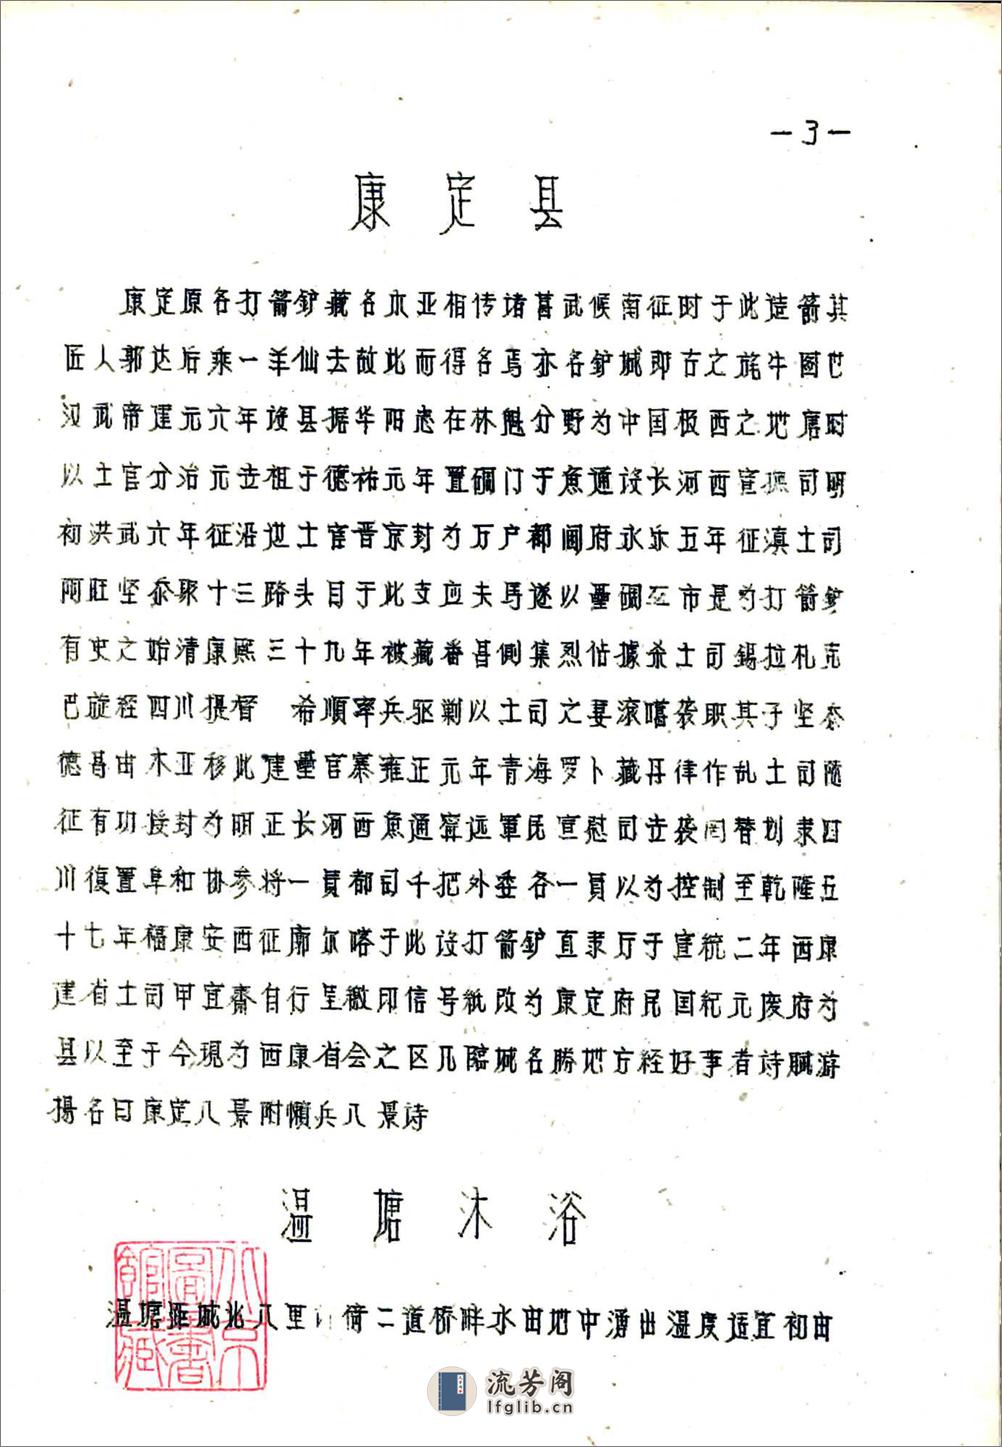 －3－
康定县
康定原名打箭鈩藏名木亚相传诸葛武候南征时于此造箭其
匠人郭达后乘一羊仙去故此而得名焉亦名鈩城即古之旄牛国也
汉武帝建元六年设县据华阳志在林魁分野为中国极西之地唐时
以土官分治元世祖于德祐元年置碉门于鱼通设长河西宣撫司明
初洪武六年征沿边土官晋京封为万户都阃府永乐五年征滇土司
阿旺坚参聚十三路头目于此支应夫馬遂以壘碉互市是为打箭鈩
有史之始清康熙三十九年被藏番昌侧集烈估據杀土司錫拉札克
巴旋经四川提督 希順率兵驱剿以土司之妻滚噶袭职其子坚参
德昌由木亚移此建壘官寨雍正元年青海罗卜藏丹律作乱土司隨
征有功授封为明正长河西魚通寧远軍民宣慰司世袭罔替划隶四
川復置阜和协参将一員都司千把外委各一員以为控制至乾隆五
十七年福康安西征廓尔喀于此设打箭鈩直隶厅于宣统二年西康
建省土司甲宜齋自行呈缴印信号紙改为康定府民国紀元废府为
县以至于今現为西康省会之区凡臨城名勝地方经好事者诗賦游
揚名曰康定八景附懶兵八景诗
温塘沐浴
温塘距城北八里 倚二道桥畔水由地中湧出温度适宜初由
北京圖書館藏
流芳阁
lfglib.cn